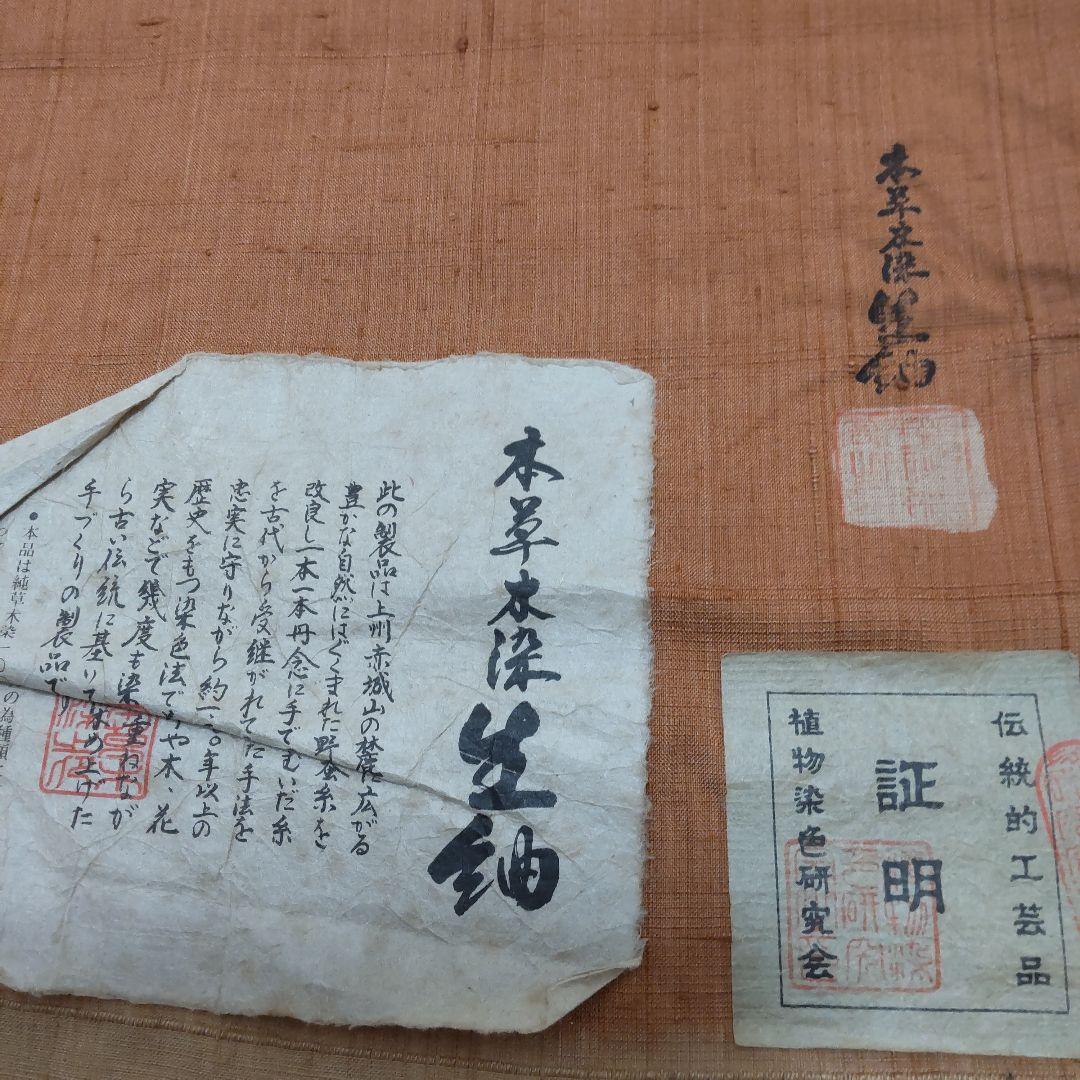 本草木染生紬
本草木染
生紬
此の製品は上州赤城山の麓広がる
豊かな自然にはぐくまれた野蚕糸を
改良し一本一本丹念に手でむいだ糸
を古代から受継がれてた手法を
忠実に守りながら約一、二〇年以上の
歴史をもつ染色法で草や木、花
実などで幾度も染重ねなが
ら古い伝統に基いて染め上げた
手づくりの製品です
●本品は純草木染
の為種類
伝統的工芸品
証明
植物染色研究会